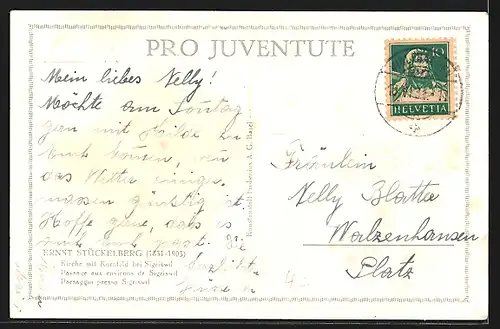 PRO JUVENTUTE
10
HELVETIA
Mein liebes Nelly!
Möchte am Sonntag
gern mit Hilde zu
Euch kommen, wenn
das Wetter einiger-
massen günstig ist.
Hoffe gerne, dass es
Euch passt.
ERNST STÜCKELBERG (1831-1903)
Kirche mit Kornfeld bei Sigriswil
Paysage aux environs de Sigriswil
Paesaggio presso Sigriswil
Fräulein
Nelly Blatter
Walzenhausen
Platz